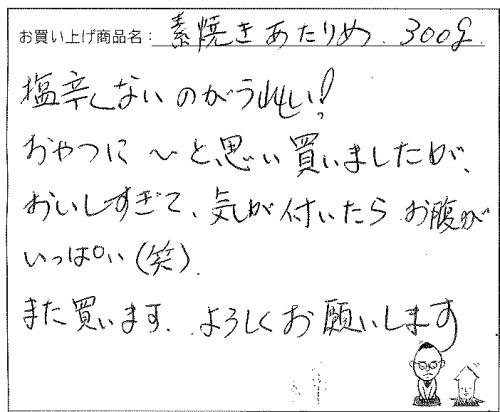 お買い上げ商品名: 素焼きあたりめ. 300g.
塩辛くないのがうれしい!
おやつに 〜と思い買いましたが、
おいしすぎて、気が付いたら お腹が
いっぱい(笑).
また買います. よろしくお願いします